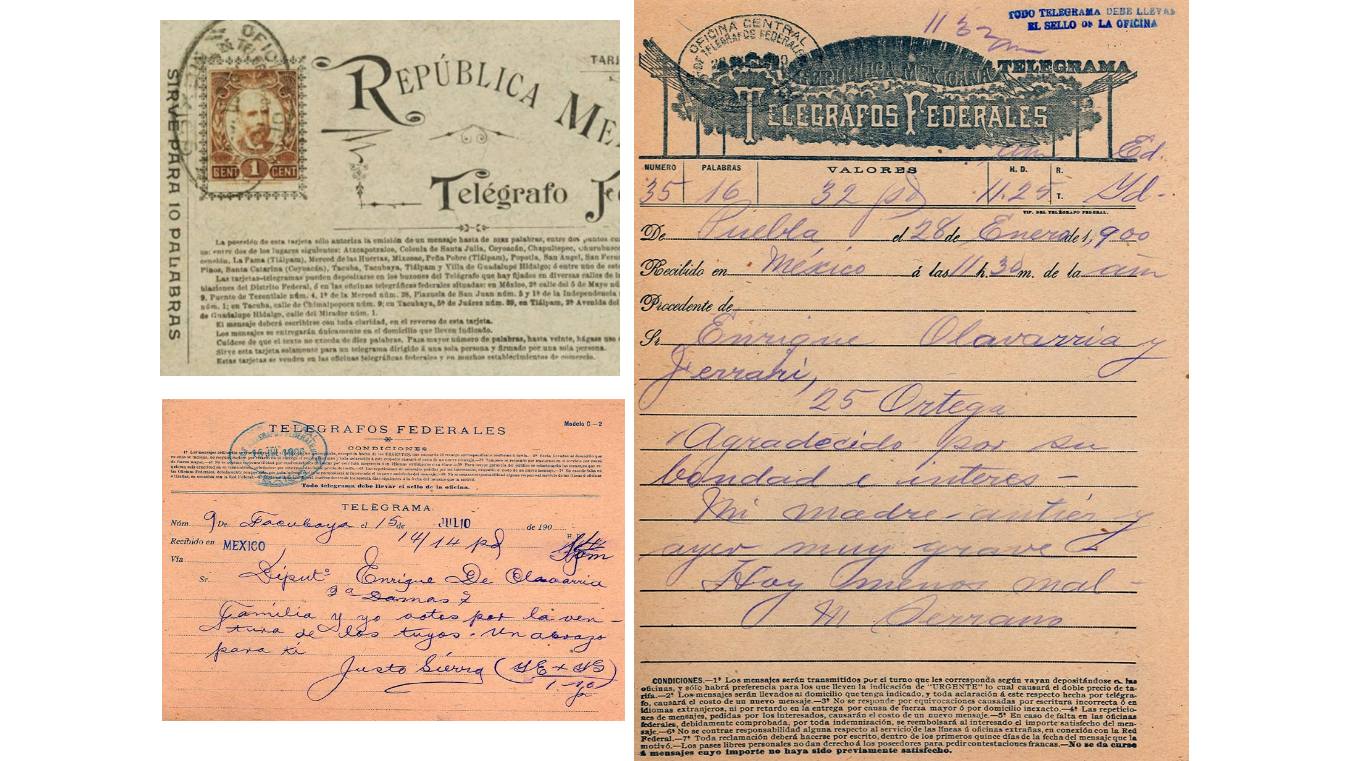 SIRVE PARA 10 PALABRAS
1
CENT CENT
REPÚBLICA ME
TARJ
Telégrafo
La posesión de esta tarjeta sólo autoriza la emisión de un mensaje hasta de DIEZ palabras, entre dos puntos
entre dos de los lugares siguientes: Atzcapotzalco, Colonia de Santa Julia, Coyoacán, Chapultepec, Churubusco
censión, La Fama (Tlálpam), Merced de las Huertas, Mixcoac, Peña Pobre (Tlálpam), Popotla, San Angel, San Fern
Pinos, Santa Catarina (Coyoacán), Tacuba, Tacubaya, Tlálpam y Villa de Guadalupe Hidalgo; ó entre uno de esto
Las tarjetas-telegramas pueden depositarse en los buzones del Telégrafo que hay fijados en diversas calles de
blaciones del Distrito Federal, ó en las oficinas telegráficas federales situadas: en México, 2ª calle del 5 de Mayo
9, Puente de Tezontlale núm. 4, 1ª de la Merced núm. 28, Plazuela de San Juan núm. 5 y 1ª de la Independencia
núm. 1; en Tacuba, calle de Chimalpopoca núm. 9; en Tacubaya, 5ª de Juárez núm. 39, en Tlálpam, 2ª Avenida del
de Guadalupe Hidalgo, calle del Mirador núm. 1.
El mensaje deberá escribirse con toda claridad, en el reverso de esta tarjeta.
Los mensajes se entregarán únicamente en el domicilio que lleven indicado.
Cuídese de que el texto no exceda de diez palabras. Para mayor número de palabras, hasta veinte, hágase uso
Sirve esta tarjeta solamente para un telegrama dirigido á una sola persona y firmado por una sola persona.
Estas tarjetas se venden en las oficinas telegráficas federales y en muchos establecimientos de comercio.
TELEGRAFOS FEDERALES
Modelo C—2
CONDICIONES
Todo telegrama debe llevar el sello de la oficina.
TELEGRAMA
Núm. 9 De Tacubaya el 15 de JULIO de 190
Recibido en MEXICO 14/14 pd
Vía
Sr. Diputº Enrique De Olavarria
Damas 7
Familia y yo votos por la ven-
tura de los tuyos. Un abrazo
para ti
Justo Sierra
TODO TELEGRAMA DEBE LLEVAR
EL SELLO DE LA OFICINA
OFICINA CENTRAL
DE TELEGRAFOS FEDERALES
REPUBLICA MEXICANA
TELEGRAMA
TELEGRAFOS FEDERALES
NUMERO PALABRAS VALORES H. D. R.
T.
35 16 32 pd 11.25
TIP. DEL TELÉGRAFO FEDERAL.
De Puebla el 28 de Enero de 1,900
Recibido en México á las 11 h. 30 m. de la am
Procedente de
Sr. Enrique Olavarria y
Ferrari,
25 Ortega
Agradecido por su
bondad e interes—
Mi madre antier y
ayer muy grave
Hoy menos mal—
M Serrano
CONDICIONES.—1ª Los mensajes serán transmitidos por el turno que les corresponda según vayan depositándose en las
oficinas, y sólo habrá preferencia para los que lleven la indicación de "URGENTE" lo cual causará el doble precio de ta-
rifa.—2ª Los mensajes serán llevados al domicilio que tenga indicado, y toda aclaración á este respecto hecha por telégra-
fo, causará el costo de un nuevo mensaje.—3ª No se responde por equivocaciones causadas por escritura incorrecta ó en
idiomas extranjeros, ni por retardo en la entrega por causa de fuerza mayor ó por domicilio inexacto.—4ª Las repeticio-
nes de mensajes, pedidas por los interesados, causarán el costo de un nuevo mensaje.—5ª En caso de falta en las oficinas
federales, debidamente comprobada, por toda indemnización, se reembolsará al interesado el importe satisfecho del men-
saje.—6ª No se contrae responsabilidad alguna respecto al servicio de las líneas ú oficinas extrañas, en conexión con la Red
Federal.—7ª Toda reclamación deberá hacerse por escrito, dentro de los primeros quince días de la fecha del mensaje que la
motivó.—Los pases libres personales no dan derecho á los poseedores para pedir contestaciones francas.—No se da curso
á mensajes cuyo importe no haya sido previamente satisfecho.